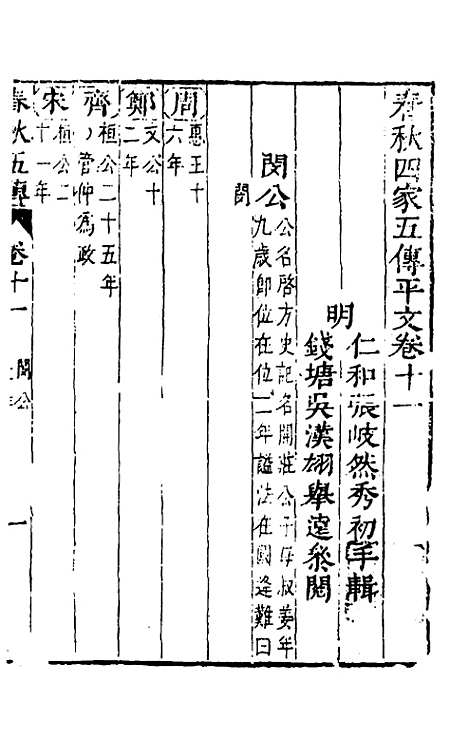 春秋四家五傳平文卷十一
明
仁和張岐然秀初手輯
錢塘吳漢翃舉遠叅閱
閔公
公名啓方史記名開莊公子母叔姜年
九歲即位在位二年謚法在國逢難曰
閔
周
惠王十
六年
鄭
文公十
二年
齊
桓公二十五年
管仲爲政
宋
桓公二
十一年
春秋五傳
卷十一
閔公
一